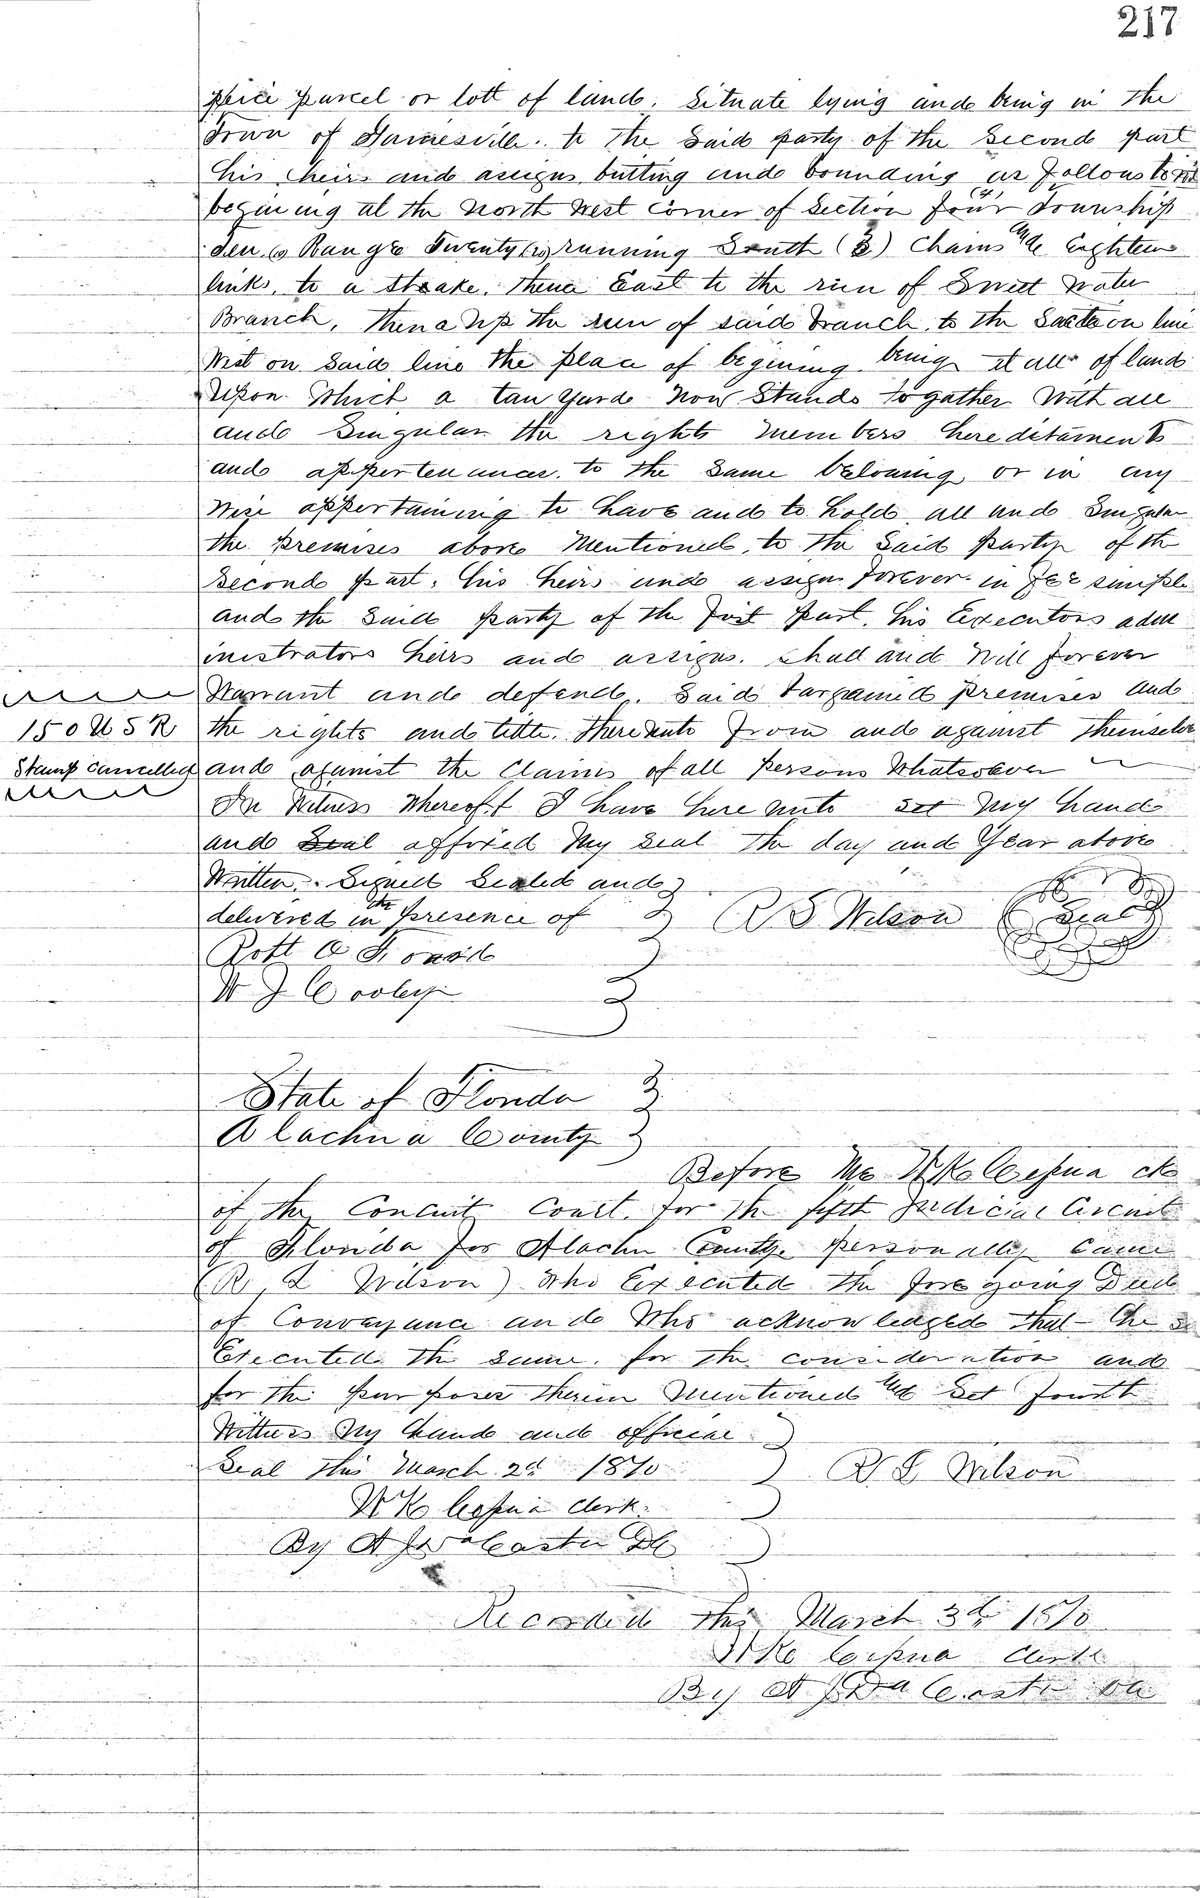 217
peice parcel or lott of land. Situate lying and being in the
Town of Gainesville. to the Said party of the Second part
his heirs and assigns butting and bounding as follows to wit
begining at the North West Corner of Section four (4) Township
Ten (10) Range Twenty (20) running South (3) Chains and Eighteen
links, to a Stake. thence East to the run of Sweet Water
Branch, thence up the run of said branch, to the Section line
West on Said line the place of begining being it all of land
Upon Which a tan yard Now Stands togather With all
and Singular the rights members hereditaments
and appertenances. to the Same belowing, or in any
Wise appertaining to have and to hold all and Singular
the premises above Mentioned, to the Said party of the
Second part, his heirs and assign forever in fee simple
and the Said party of the first part, his Executors adm
inistrators heirs and assigns. Shall and Will forever
Warrant and defend. Said bargained premises and
150 U S R
the rights and title. thereunto from and against themselves
Stamp Cancelled
and against the Claims of all persons Whatsoever
In Witness Whereof I have here unto set My hand
and Seal affixed My Seal the day and Year above
Written. Signed Sealed and
delivered in the presence of R S Wilson Seal
Robt
W J Cooley
State of Florida
Alachua County
Before Me W K Cessna clk
of the Corcuit Court. for the fifth Judicial Circuit
of Florida for Alachu County personally came
(R L Wilson) Who Executed the fore going Deed
of Convayance and Who acknowledged that he
Executed the same. for the consideration and
for the purposes therein Mentioned and Set fourth
Wittness My hand and official
Seal this March 2d 1870 R L Wilson
W K Cessna Clerk.
By A J DaCosta DC
Recorded this March 3d 1870
W K Cessna Clerk
By A J DaCosta DC